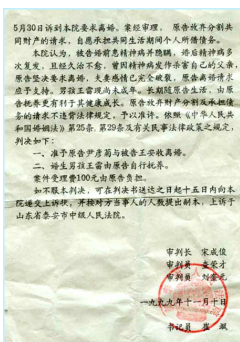 5月30日诉到本院要求离婚。案经审理，原告放弃分割共
同财产的请求，自愿承担共同生活期间个人所借债务。
本院认为，被告婚前患精神病并隐瞒，婚后精神病多
次复发，且经久治不愈，曾因精神病发作杀害自己的父亲，
原告坚决要求离婚，夫妻感情已完全破裂，原告离婚请求
应予支持。男孩王霄现尚未成年，长期随原告生活，由原
告抚养更有利于其健康成长。原告放弃财产分割及承担债
务的请求不违背法律规定，予以准许。依照《中华人民共
和国婚姻法》第25条、第29条及有关民事法律政策之规定，
判决如下：
一、准予原告尹彦菊与被告王安收离婚。
二、婚生男孩王霄由原告自行抚养。
案件受理费100元由原告负担。
如不服本判决，可在判决书送达之日起十五日内向本
院递交上诉状，并按对方当事人的人数提出副本，上诉于
山东省泰安市中级人民法院。
审判长 宋成俊
审判员 查荣才
审判员 刘奎元
一九九九年十一月十日
书记员 崔斌